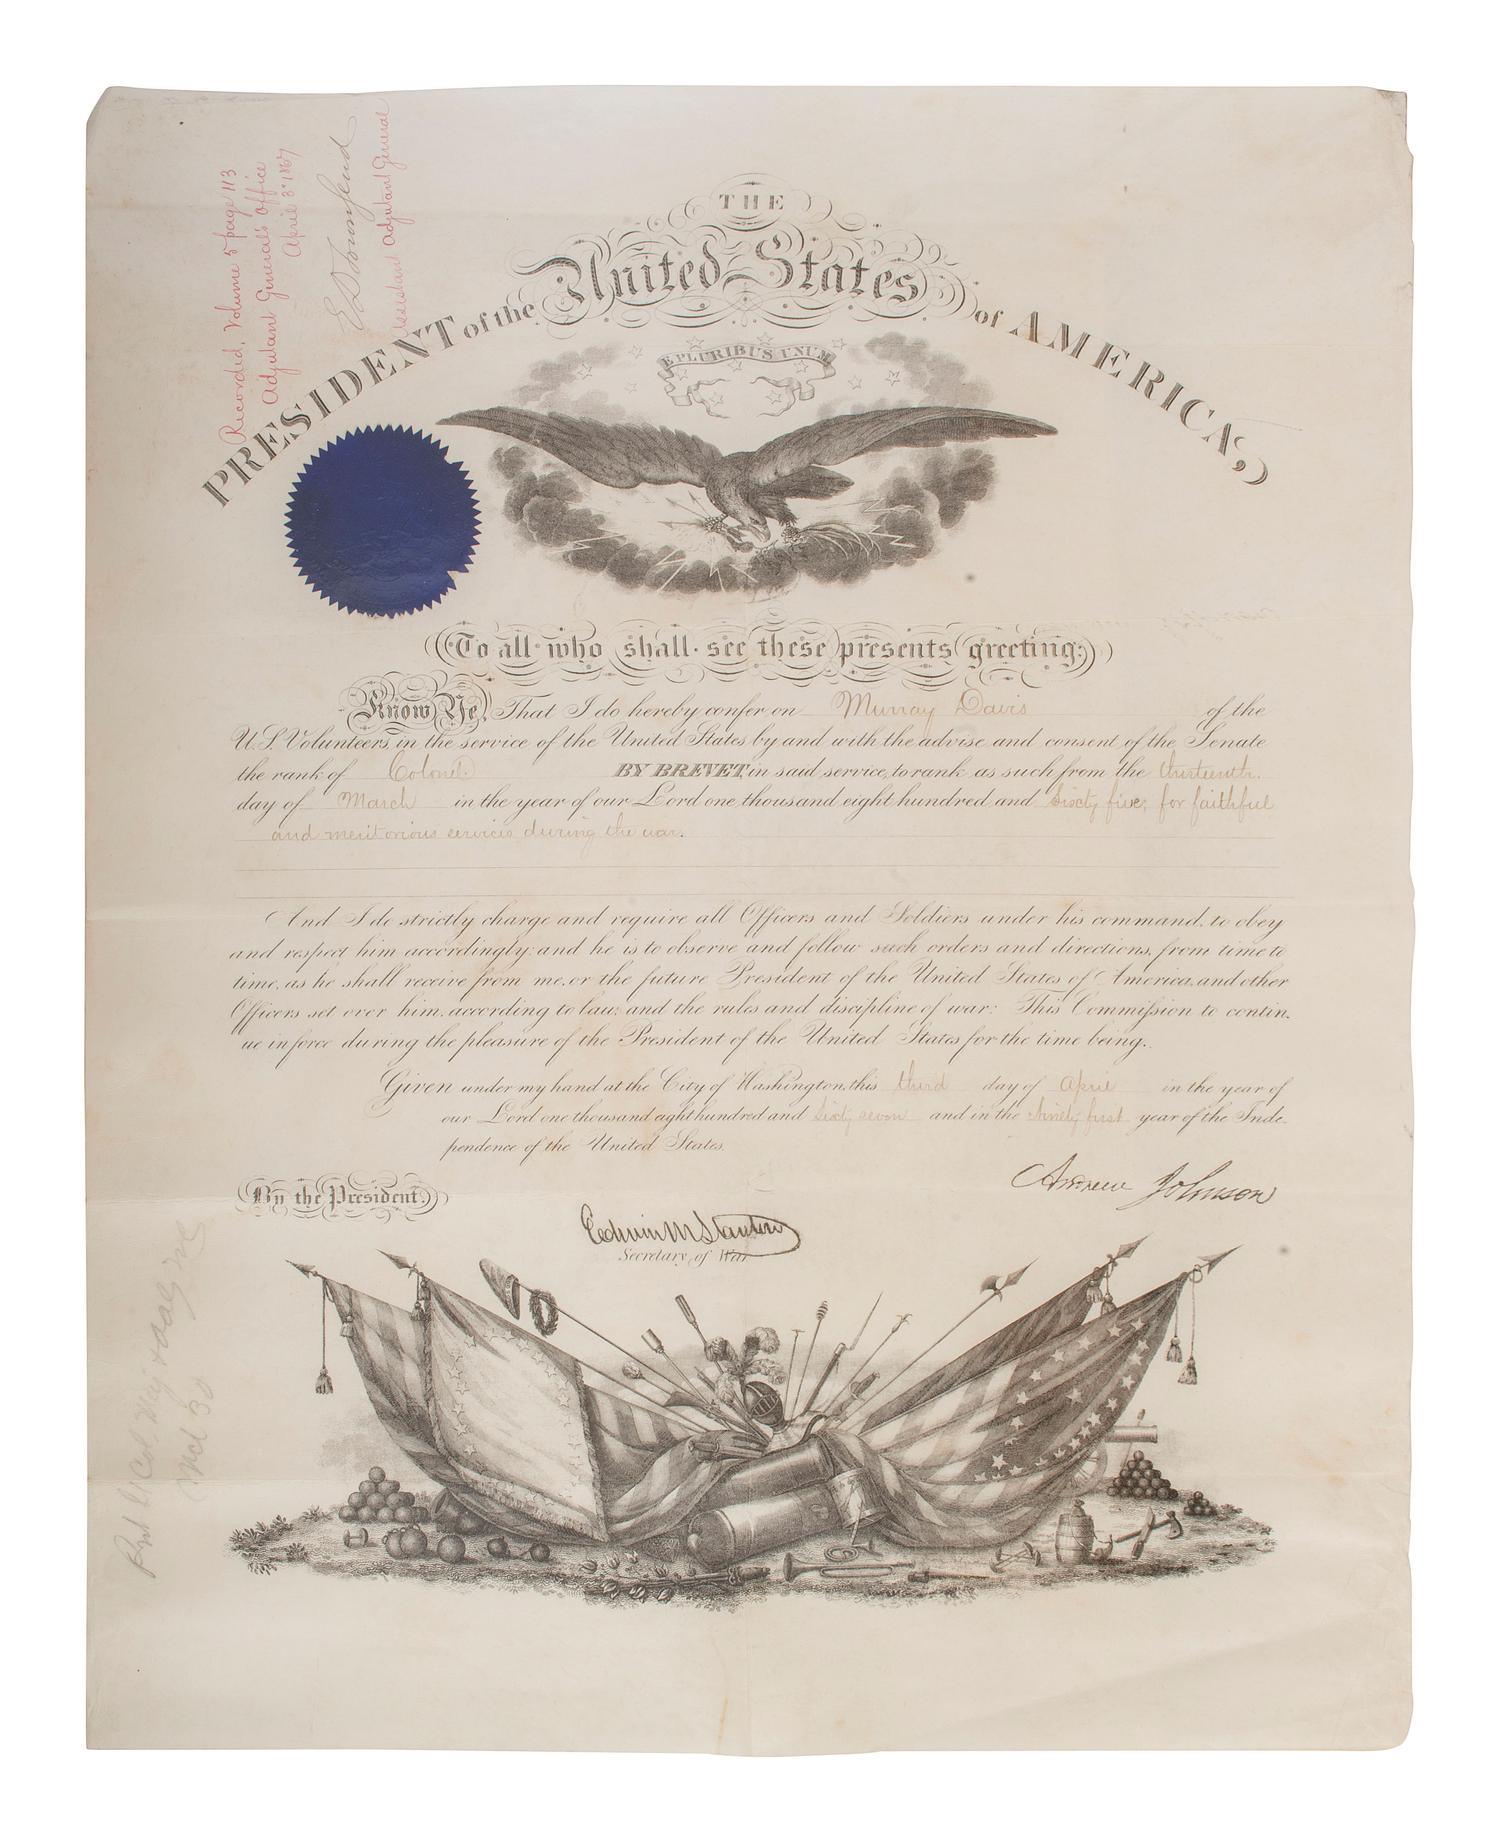 Recorded, Volume 5 page 113
Adjutant General's Office
April 3d 1867
E D Townsend
Assistant Adjutant General
THE
PRESIDENT of the United States of AMERICA,
E PLURIBUS UNUM
To all who shall see these presents greeting:
Know Ye, That I do hereby confer on Murray Davis of the
U.S. Volunteers, in the service of the United States by and with the advise and consent of the Senate
the rank of Colonel BY BREVET, in said service, to rank as such from the thirteenth
day of March in the year of our Lord one thousand eight hundred and Sixty five, for faithful
and meritorious services during the war.
And I do strictly charge and require all Officers and Soldiers under his command, to obey
and respect him accordingly: and he is to observe and follow such orders and directions, from time to
time, as he shall receive from me, or the future President of the United States of America, and other
Officers set over him, according to law, and the rules and discipline of war: This Commission to contin-
ue in force during the pleasure of the President of the United States for the time being.
Given under my hand at the City of Washington, this third day of April in the year of
our Lord one thousand eight hundred and Sixty seven and in the Ninety first year of the Inde-
pendence of the United States.
Andrew Johnson
By the President,
Edwin M Stanton
Secretary of War